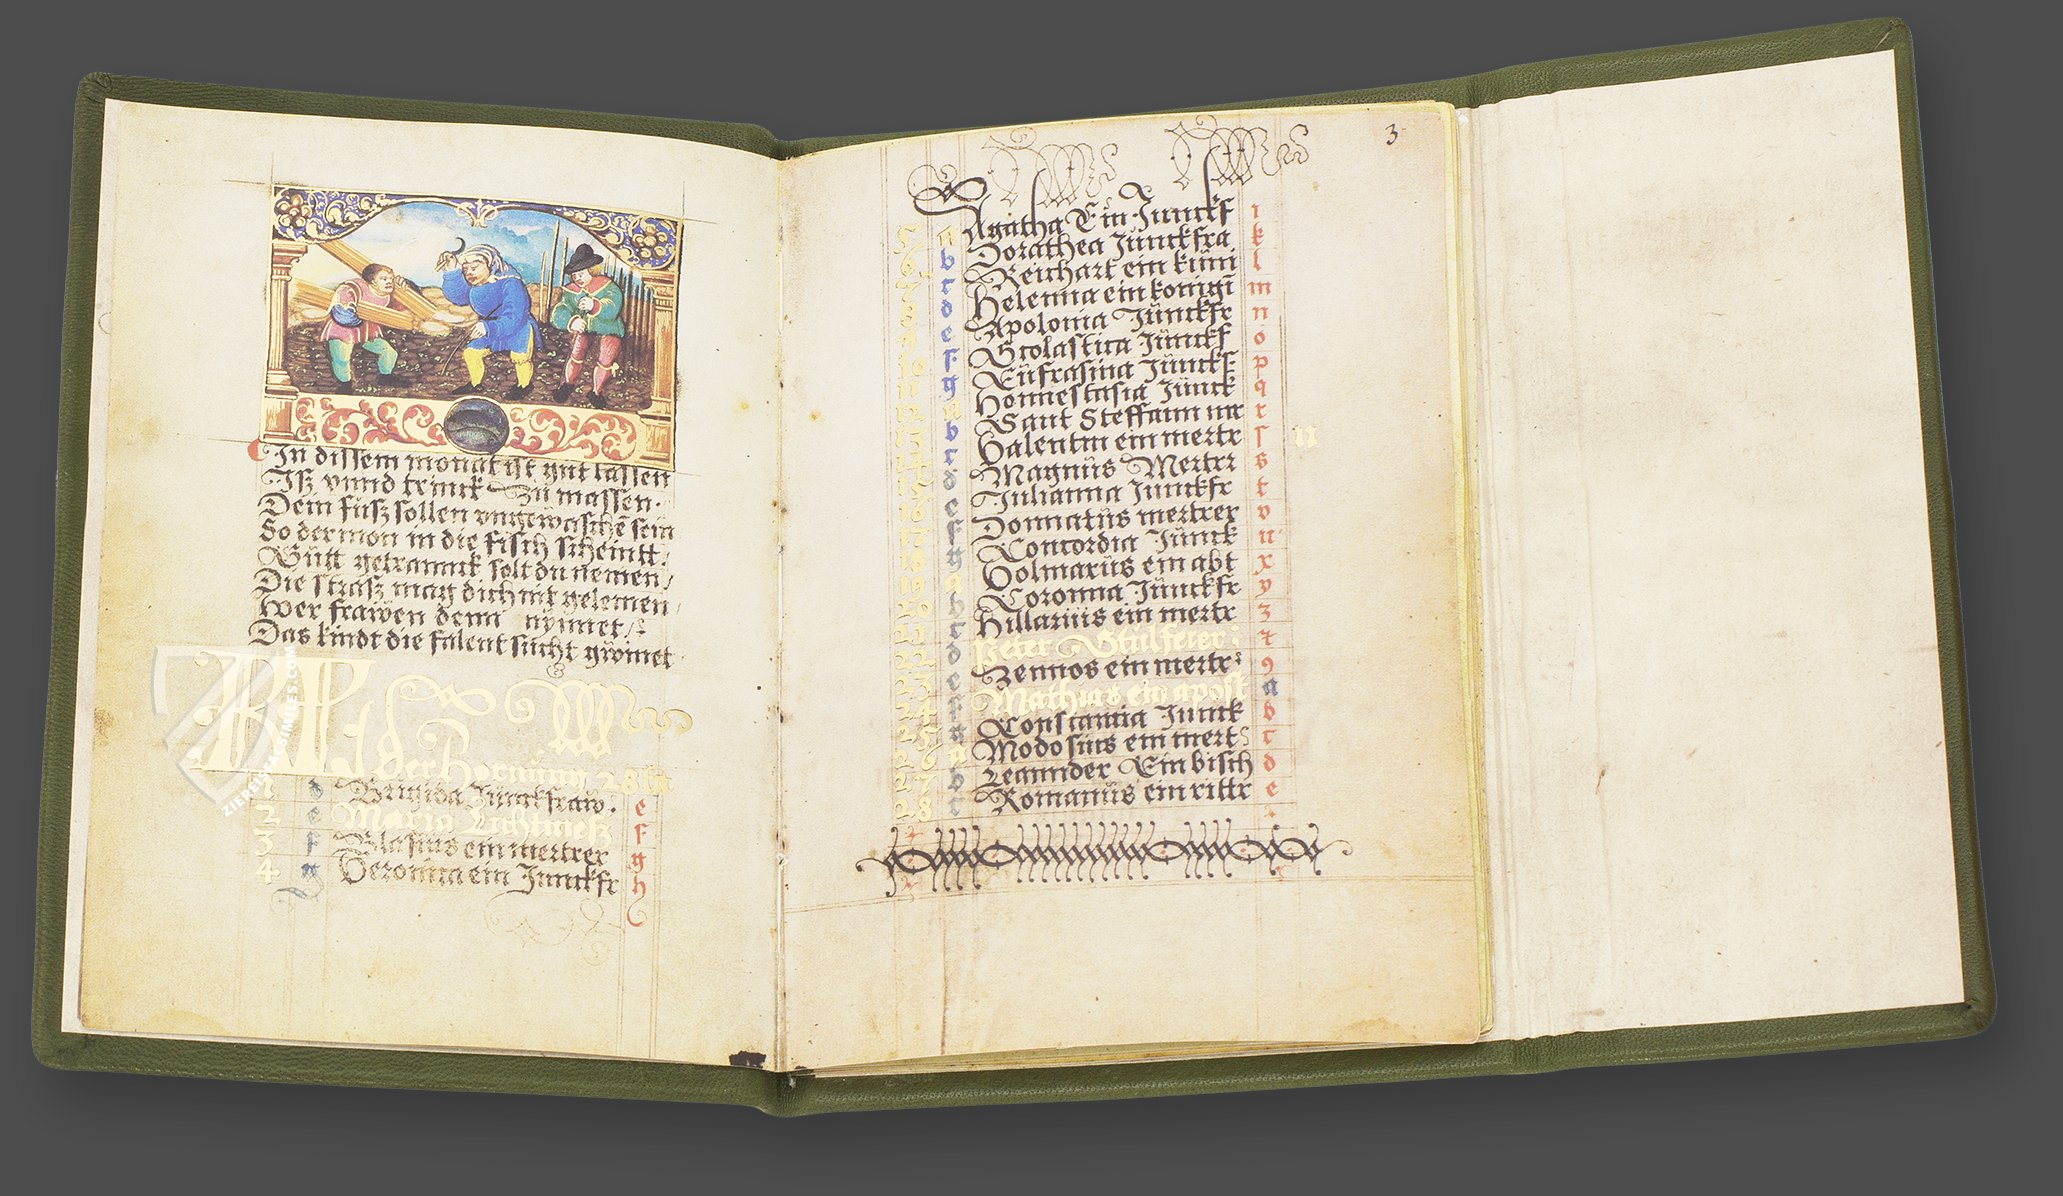 In dissem monat ist gut lassen
Isz vnnd trinck Zu massen
Dein fusz sollen vngewaschē sein
So der mon in die fisch scheintt
Gütt getranck solt du nemen
Die strasz mag dich nit gelemen
Wer frawen denn nymet
Das kindt die falent sücht gwinet
der Hornüng 28
1 d Brigida Junckfraw e
2 e Maria Lichtmesz f
3 f Blasius ein mertrer g
4 g Veronica ein Junckfr h
ZIEREIS FACSIMILES.COM
3
5 a Agatha Ein Junckf i
6 b Dorathea Junckfra k
7 c Reichart ein küni l
8 d Helenna ein konigī m
9 e Apolonia Jünckfr n
10 f Scolastica Jünckf o
11 g Eüfrasina Jüncks p
12 a Honnestasia Jünck q
13 b Sant Steffann r
14 c Valentin ein mertr ſ
15 d Magnüs Mertrer s
16 e Julianna Junckfr t
17 f Donnatüs mertrer v
18 g Concordia Jünck u
19 a Volmarüs ein abt x
20 b Coronna Jünckfr y
21 c Hillariüs ein mertr z
22 d Peter Stülfeier
23 e Zennos ein mertr 9
24 f Mathias ein apost a
25 g Constantia Junck b
26 a Modosius ein mert c
27 b Leannder Ein bisch d
28 c Romanüs ein rittr e